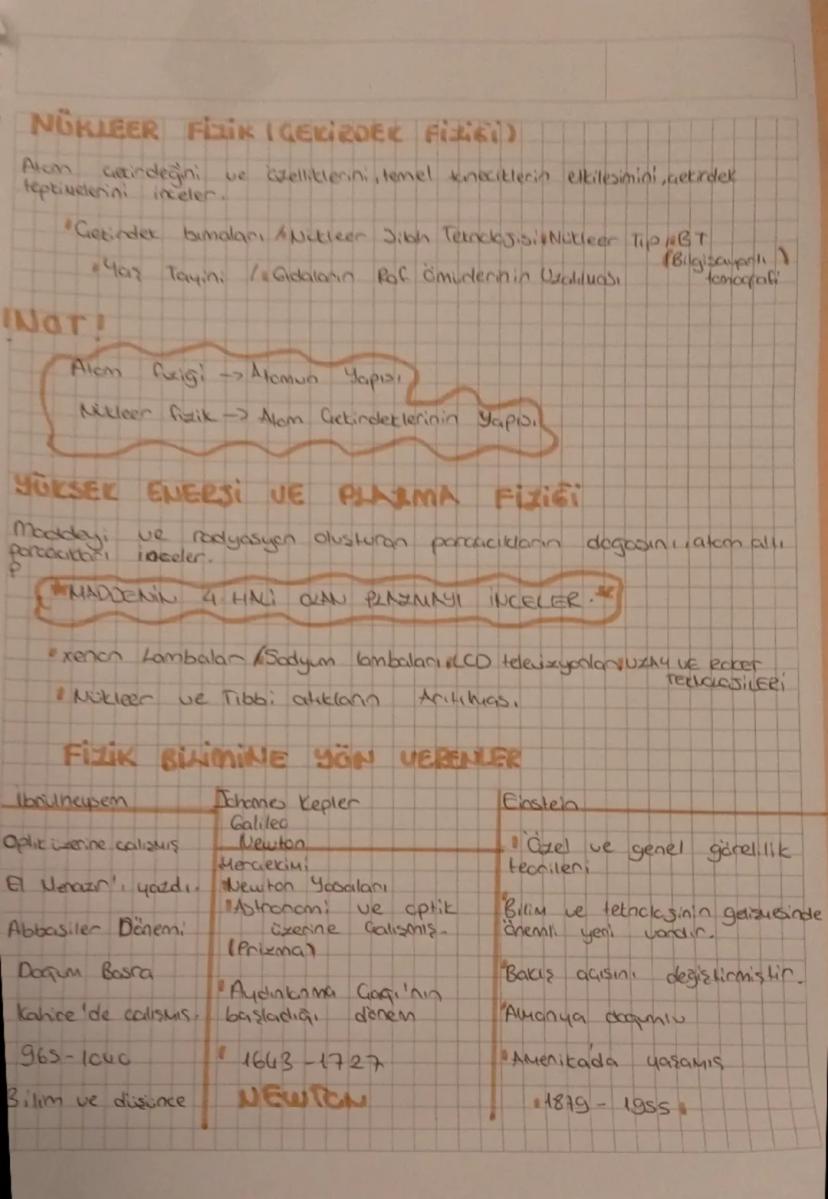 NÜKLEER FİZİK (ÇEKİRDEK FİZİĞİ)
Atom çekirdeğini ve özelliklerini, temel etkileşimini, çekirdek
tepkimelerini inceler.
Çekirdek Nükleer Silah Teknolojisi Nükleer Tıp BT
(Bilgisayarlı tomografi)
Yaş Tayini / Gıdaların Raf Ömürlerinin Uzatılması
!NOT!
Atom fiziği -> Atomun Yapısı
Nükleer fizik -> Atom Çekirdeklerinin Yapısı
YÜKSEK ENERJİ VE PLAZMA FİZİĞİ
Maddeyi ve radyasyon oluşturan parçacıkların doğasını, atom altı
parçacıkları inceler.
*MADDENİN 4 HALİ OLAN PLAZMAYI İNCELER.*
xenon Lambaları / Sodyum lambaları LCD televizyonlar UZAY VE ROKET
TEKNOLOJİLERİ
Nükleer ve Tıbbi atıkların Arıtılması.
FİZİK BİLİMİNE YÖN VERENLER
İbnülheysem
Optik üzerine çalışmış
El Menazır'ı yazdı.
Abbasiler Dönemi
Doğum Basra
Kahire'de çalışmış.
965-1040
Bilim ve düşünce
Johannes Kepler
Galileo
Newton
Newton Yasaları
Astronomi ve optik
üzerine Çalışmış.
(Prizma)
Aydınlanma Çağı'nın
başladığı dönem
1643-1727
NEWTON
Einstein
Özel ve genel görelilik
teorileri
Bilim ve teknolojinin gelişmesinde
önemli yeri vardır.
Bakış açısını değiştirmiştir.
Almanya doğumlu
Amerikada yaşamış
1879-1955